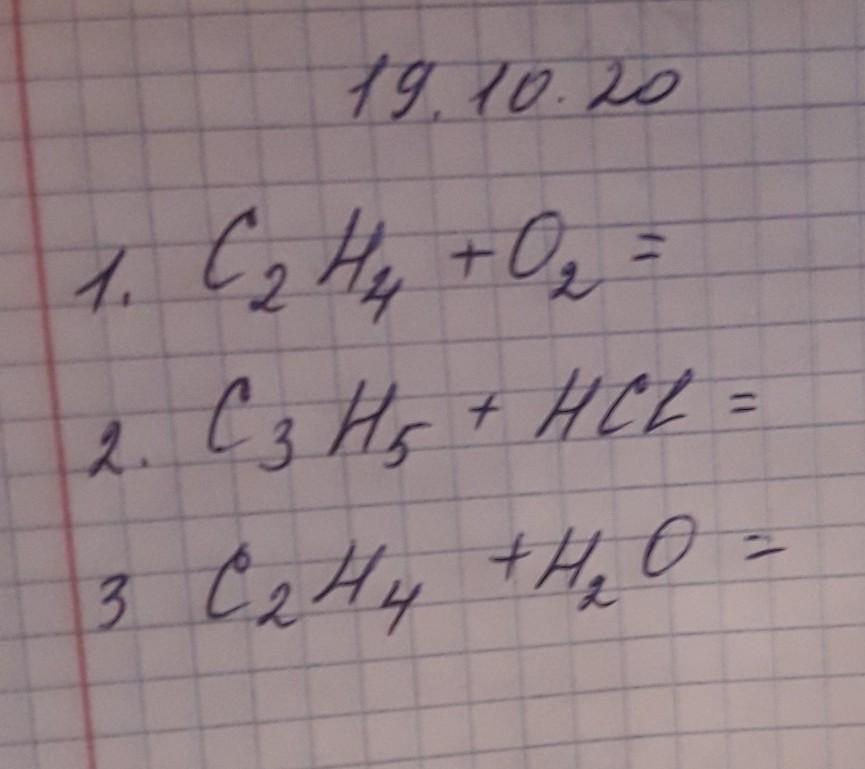 19.10.20
1. C₂H₄ + O₂ =
2. C₃H₅ + HCl =
3 C₂H₄ + H₂O =